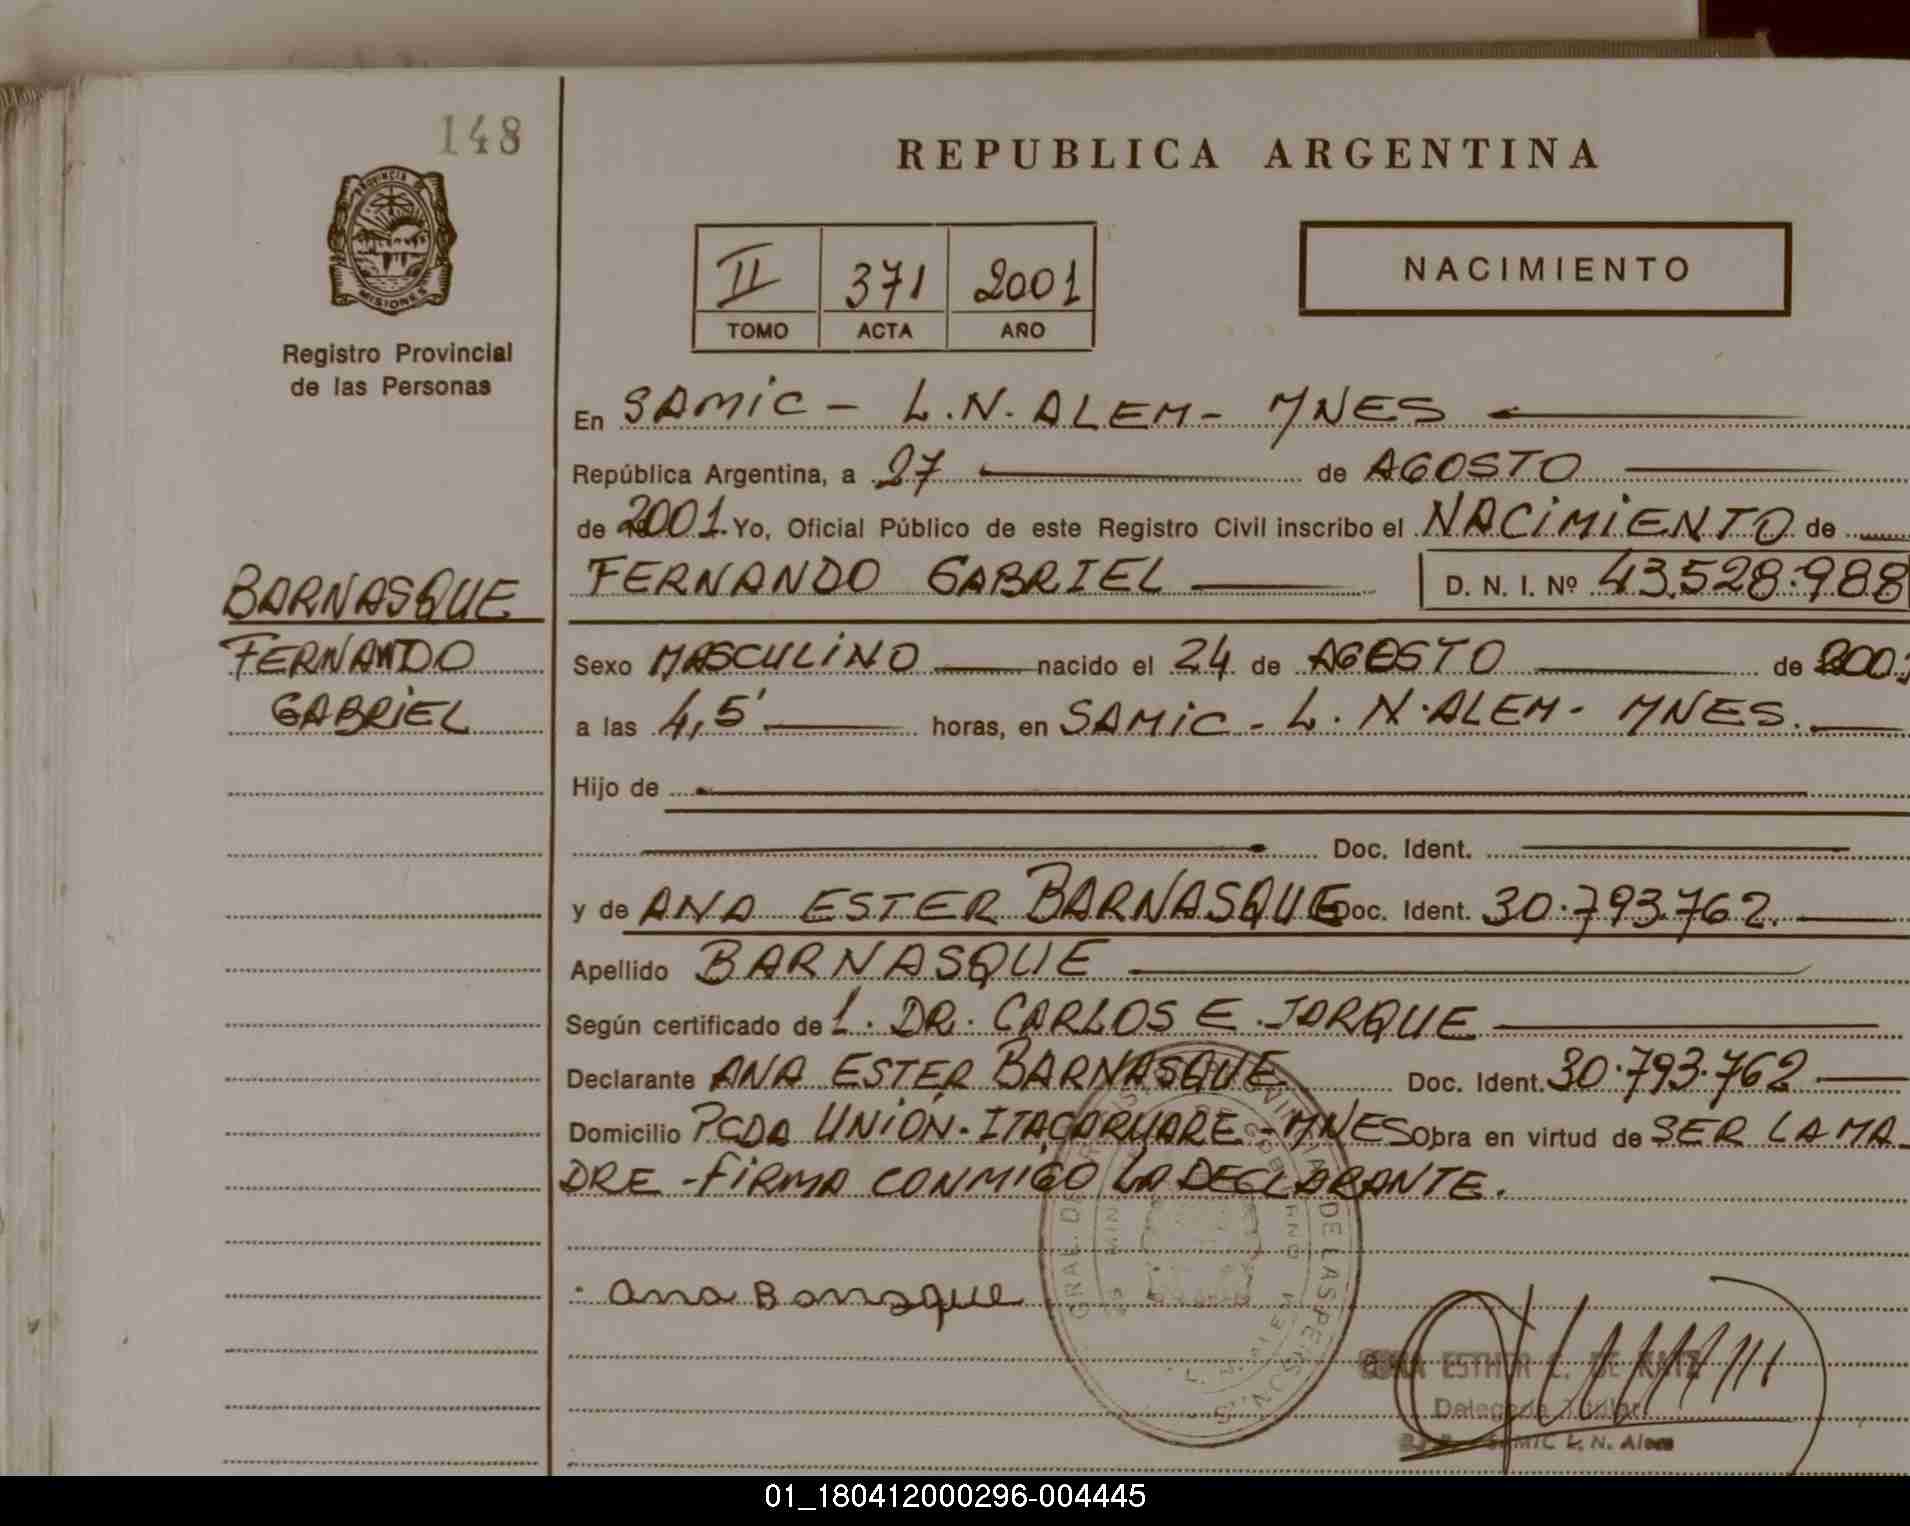 148
REPUBLICA ARGENTINA
PROVINCIA DE
MISIONES
Registro Provincial
de las Personas
II 371 2001
TOMO ACTA AÑO
NACIMIENTO
En SAMIC - L.N. ALEM - MNES
República Argentina, a 27 de AGOSTO
de 2001. Yo, Oficial Público de este Registro Civil inscribo el NACIMIENTO de
FERNANDO GABRIEL D. N. I. Nº 43.528.988
BARNASQUE
FERNANDO
GABRIEL
Sexo MASCULINO nacido el 24 de AGOSTO de 2001
a las 4,5' horas, en SAMIC - L. N. ALEM - MNES.
Hijo de
Doc. Ident.
y de ANA ESTER BARNASQUE Doc. Ident. 30.793.762.
Apellido BARNASQUE
Según certificado de L. DR. CARLOS E. JARQUE
Declarante ANA ESTER BARNASQUE Doc. Ident. 30.793.762
Domicilio PCDA UNIÓN - ITACARUARE - MNES Obra en virtud de SER LA MA
DRE - FIRMA CONMIGO LA DECLARANTE.
Ana Barnasque
GRAL. DE LAS PERSONAS
L. N. ALEM
ESTHER C. DE
Delegada Titular
SAMIC L. N. Alem
01_180412000296-004445